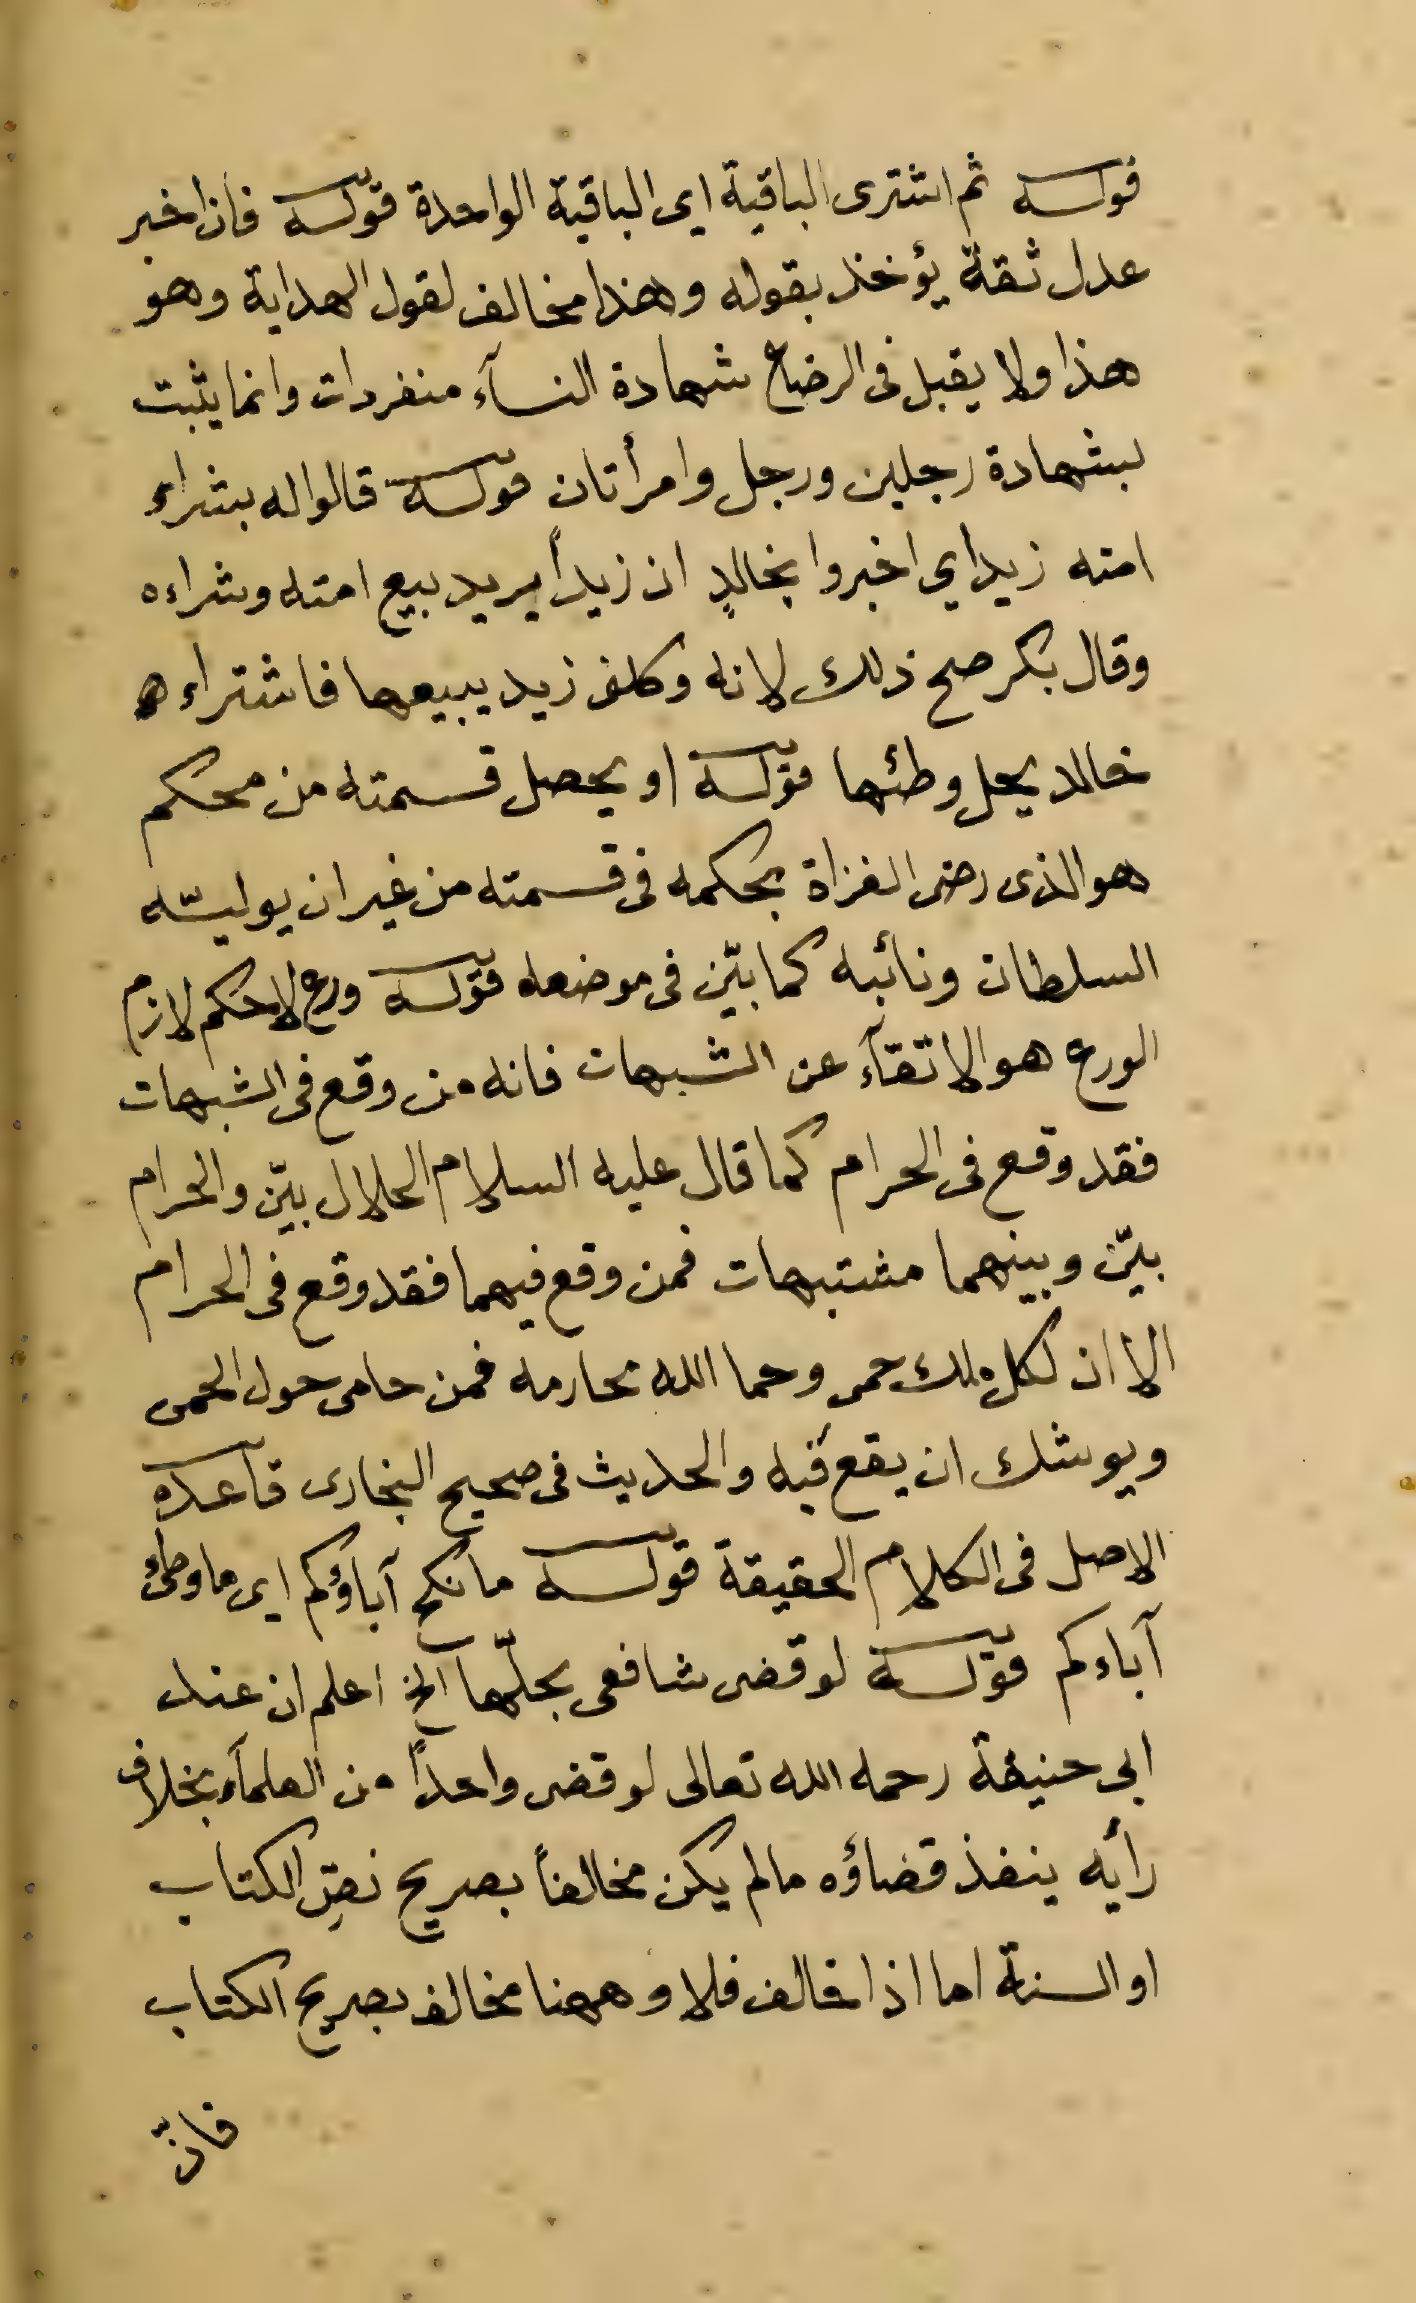 قوله ثم اشترى الباقية اي الباقية الواحدة قوله فان اخبر
عدل ثقة يؤخذ بقوله وهذا مخالف لقول الهداية وهو
هذا ولا يقبل فى الرضاع شهادة النسآء منفردات وانما يثبت
بشهادة رجلين ورجل وامرأتان قوله قالوا له بشراء
امته زيد اي اخبروا بخالدٍ ان زيداً يريد بيع امته وشراءه
وقال بكر صح ذلك لانه وكلنى زيد ببيعها فاشتراءه
خالد يحل وطئها قوله او يحصل قسمته من محكم
هو الذى رضى الغزاة بحكمه فى قسمته من غير ان يوليّه
السلطان ونائبه كما بيّن فى موضعه قوله ورع لا حكم لازم
الورع هو الاتقآء عن الشبهات فانه من وقع فى الشبهات
فقد وقع فى الحرام كما قال عليه السلام الحلال بيّن والحرام
بيّن وبينهما مشتبهات فمن وقع فيهما فقد وقع فى الحرام
الا ان لكل ملك حمى وحما الله محارمه فمن حامى حول الحمى
ويوشك ان يقع فيه والحديث فى صحيح البخارى قاعدة
الاصل فى الكلام الحقيقة قوله ما نكح آباؤكم اى ما وطئ
آباءكم قوله لو قضى شافعى بحلّها الخ اعلم ان عند
ابى حنيفة رحمه الله تعالى لو قضى واحداً من العلمآء بخلاف
رأيه ينفذ قضاؤه مالم يكن مخالفاً بصريح نصّ الكتاب
او السنة اما اذا خالف فلا وههنا مخالف بصريح الكتاب
فانّ